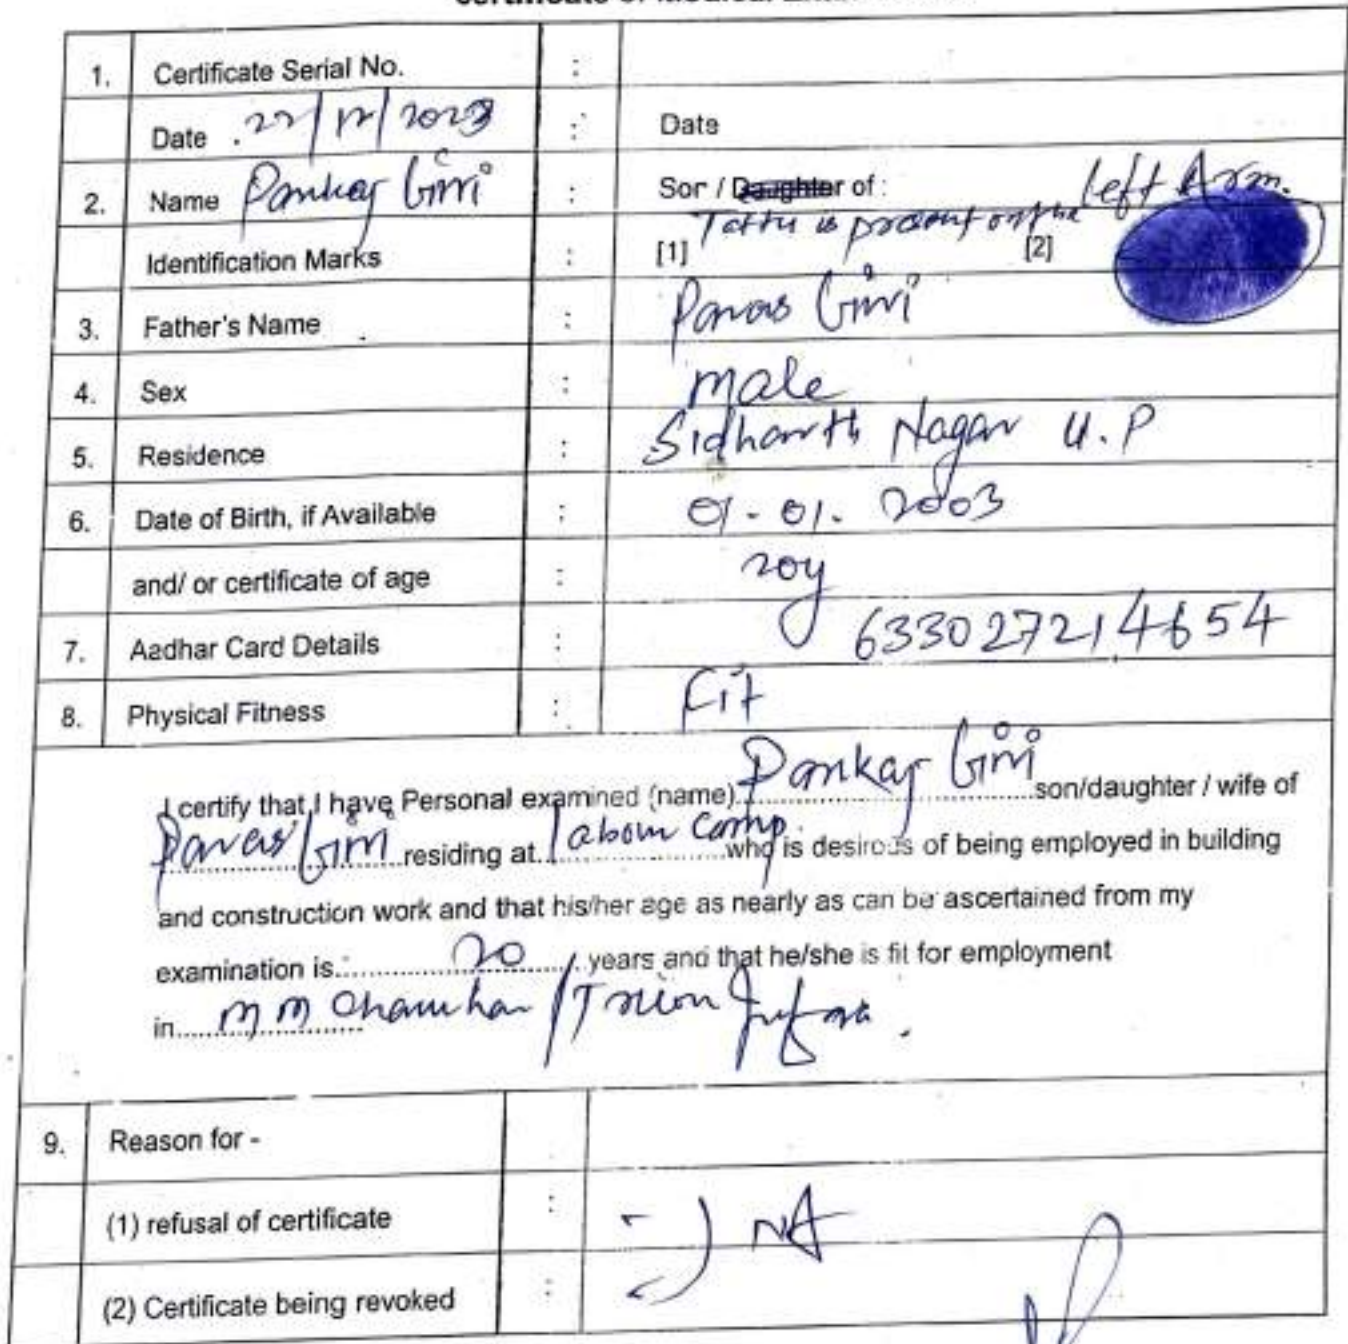 1. Certificate Serial No. :
Date . 22/12/2023 : Date
2. Name Pankaj Giri : Son / Daughter of :
Identification Marks : [1] Tattu is present on the [2] left Arm.
3. Father's Name : Paras Giri
4. Sex : male
5. Residence : Sidharth Nagar U.P
6. Date of Birth, if Available : 01-01-2003
and/ or certificate of age : 20y
7. Aadhar Card Details : 633027214654
8. Physical Fitness : Fit
I certify that I have Personal examined (name) Pankaj Giri son/daughter / wife of
Paras Giri residing at labour camp. who is desirous of being employed in building
and construction work and that his/her age as nearly as can be ascertained from my
examination is 20 years and that he/she is fit for employment
in M M Chauhan / Infra.
9. Reason for -
(1) refusal of certificate : -) NA
(2) Certificate being revoked :